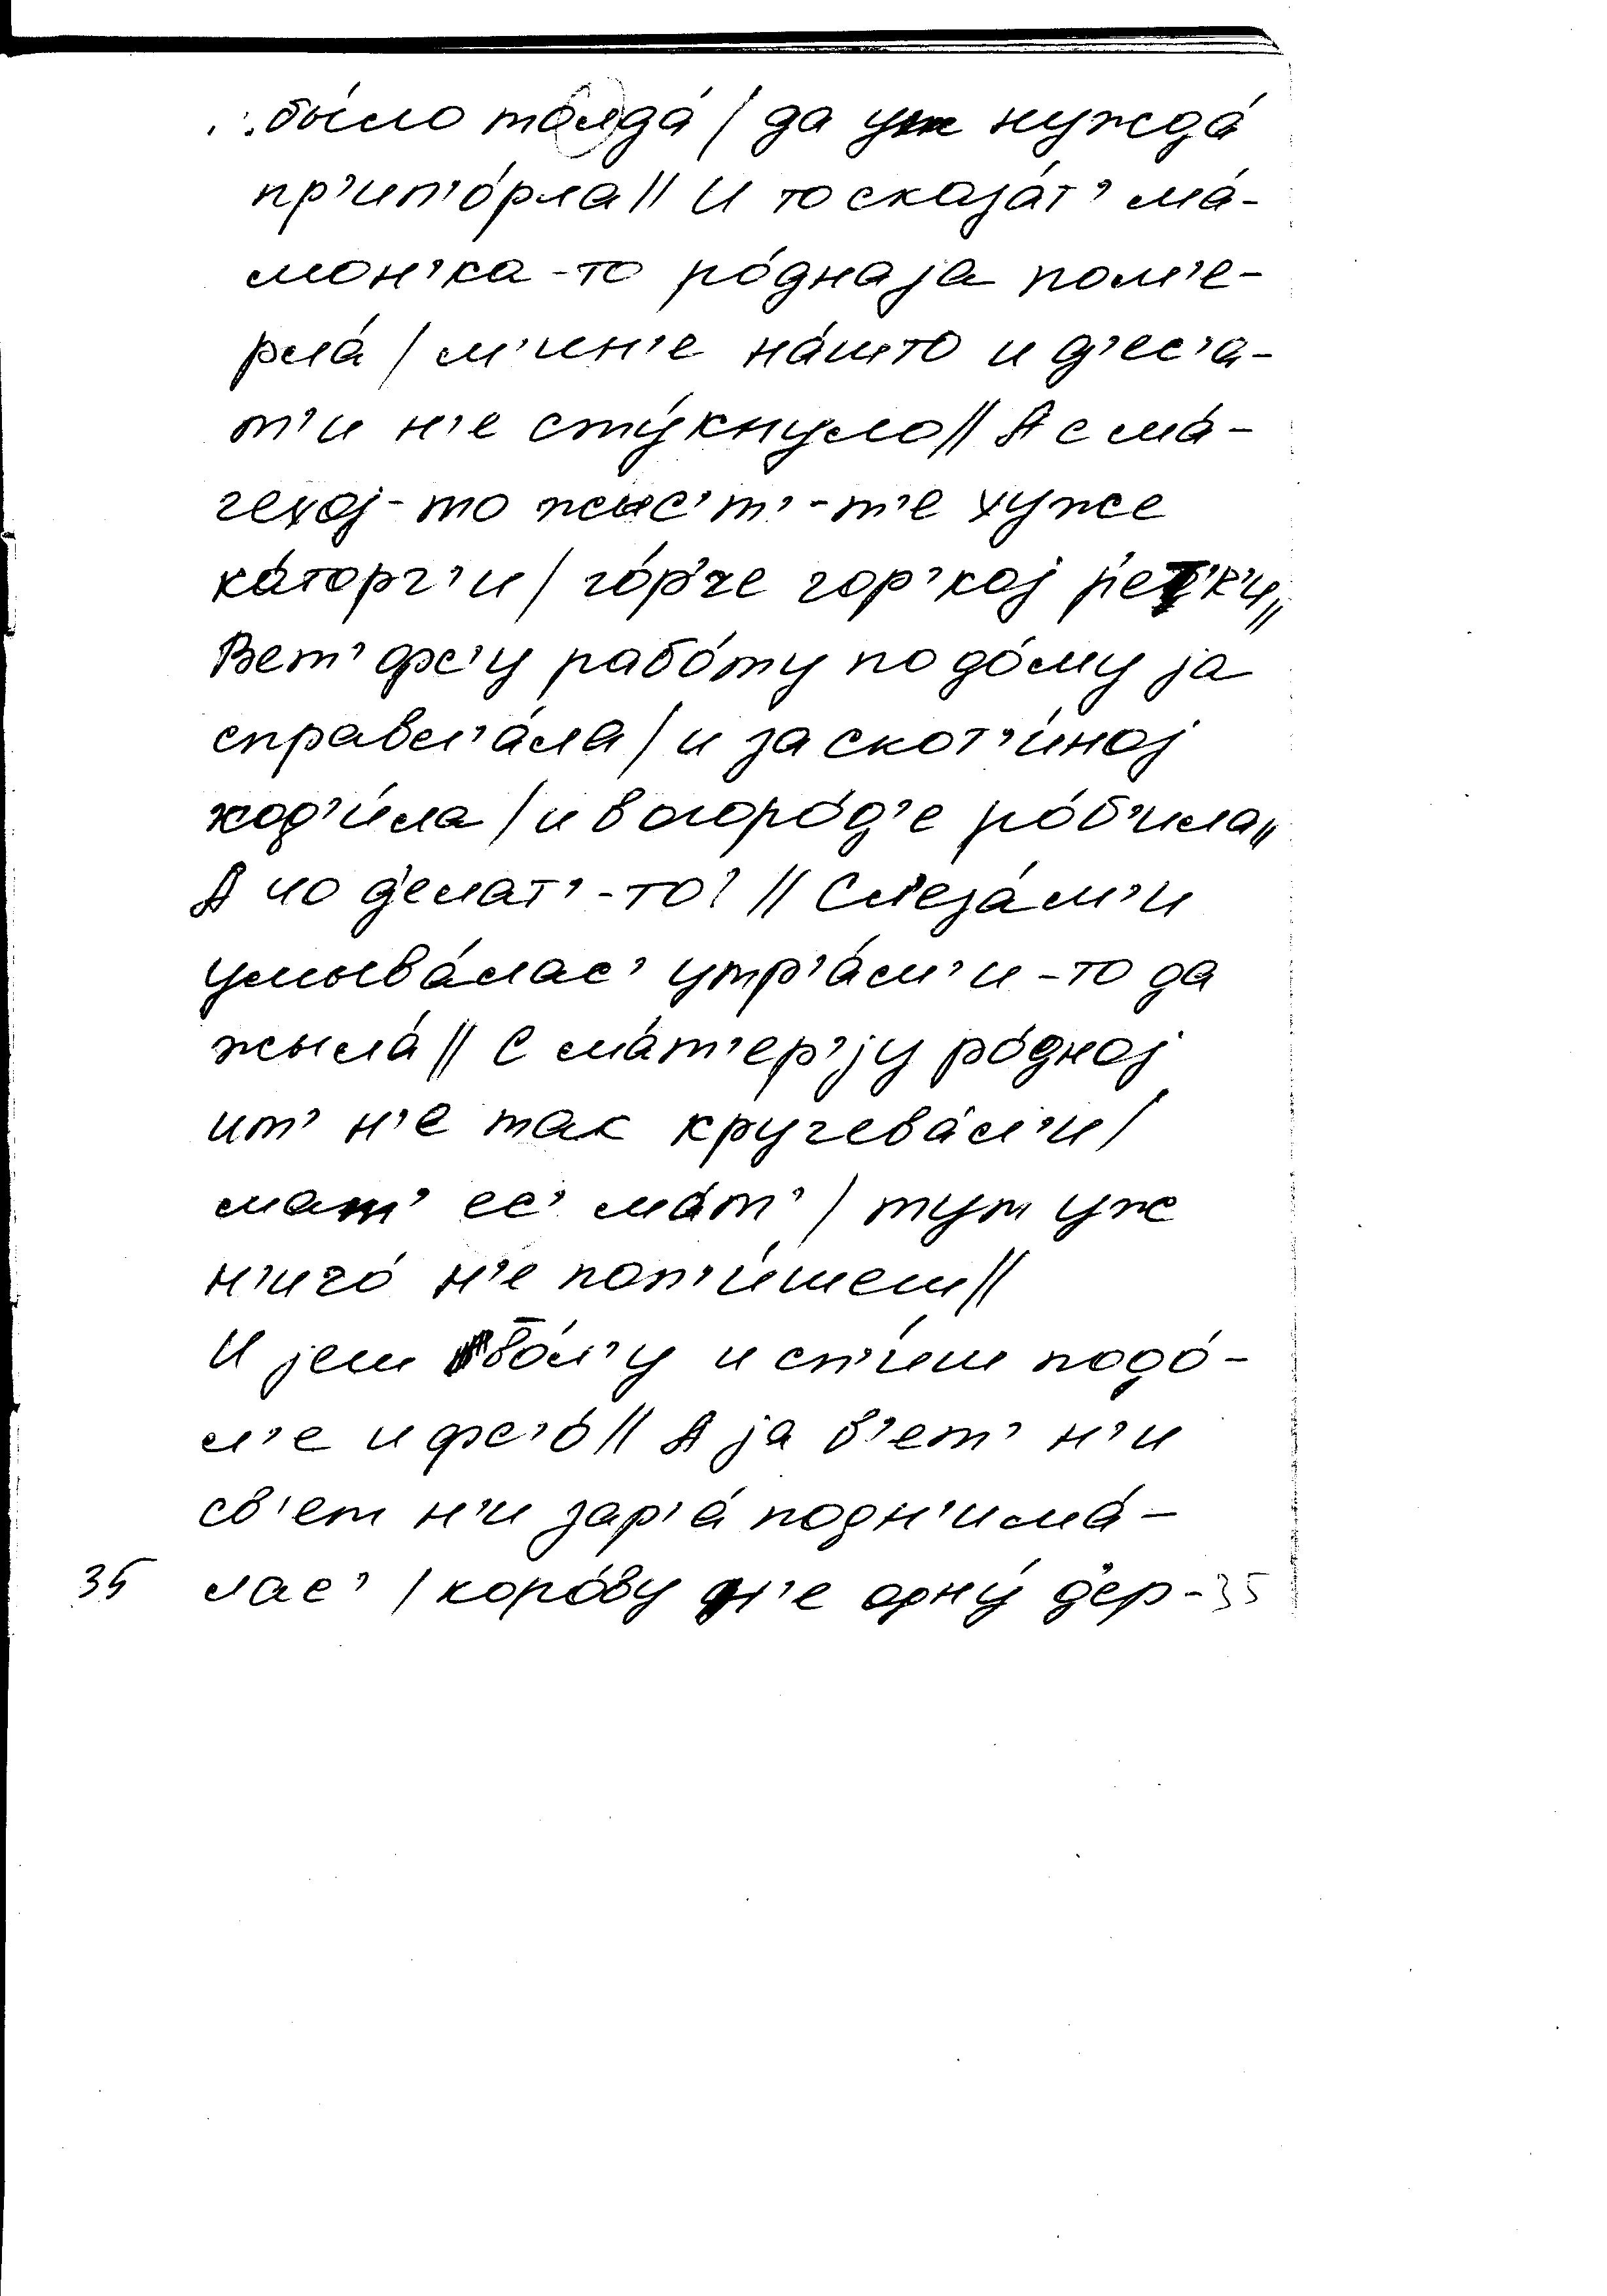 бы́ло толда́ / да уж нужда́
пр'ип'о́рла // И то сказа́т' ма́-
мон'ка-то ро́днаjа пом'е-
рла́ / м'ин'е на́што и д'ес'а-
т'и н'е сту́кнуло // А с ма́-
чехоj-то жыс'т'-т'е хуже
ка́торг'и / го́р'че гор'коj р'ет'к'и //
Вет' фс'у рабо́ту по до́му jа
справл'а́ла / и за скот'и́ноj
ход'и́ла / и в огоро́д'е ро́б'ила //
А чо д'елат'-то? // Сл'еза́м'и
умыва́лас' утр'а́м'и-то да
жыла́ // С ма́т'ер'jу ро́дноj
ит' н'е так кручева́л'и /
мат' ес' ма́т' / тут уж
н'ичо́ н'е поп'и́шеш //
И jеш во́л'у и сп'иш подо́-
л'е и фс'о́ // А jа в'ет' н'и
св'ет н'и зар'а́ подн'има́-
35 лас' / коро́ву н'е одну́ д'ер- 35